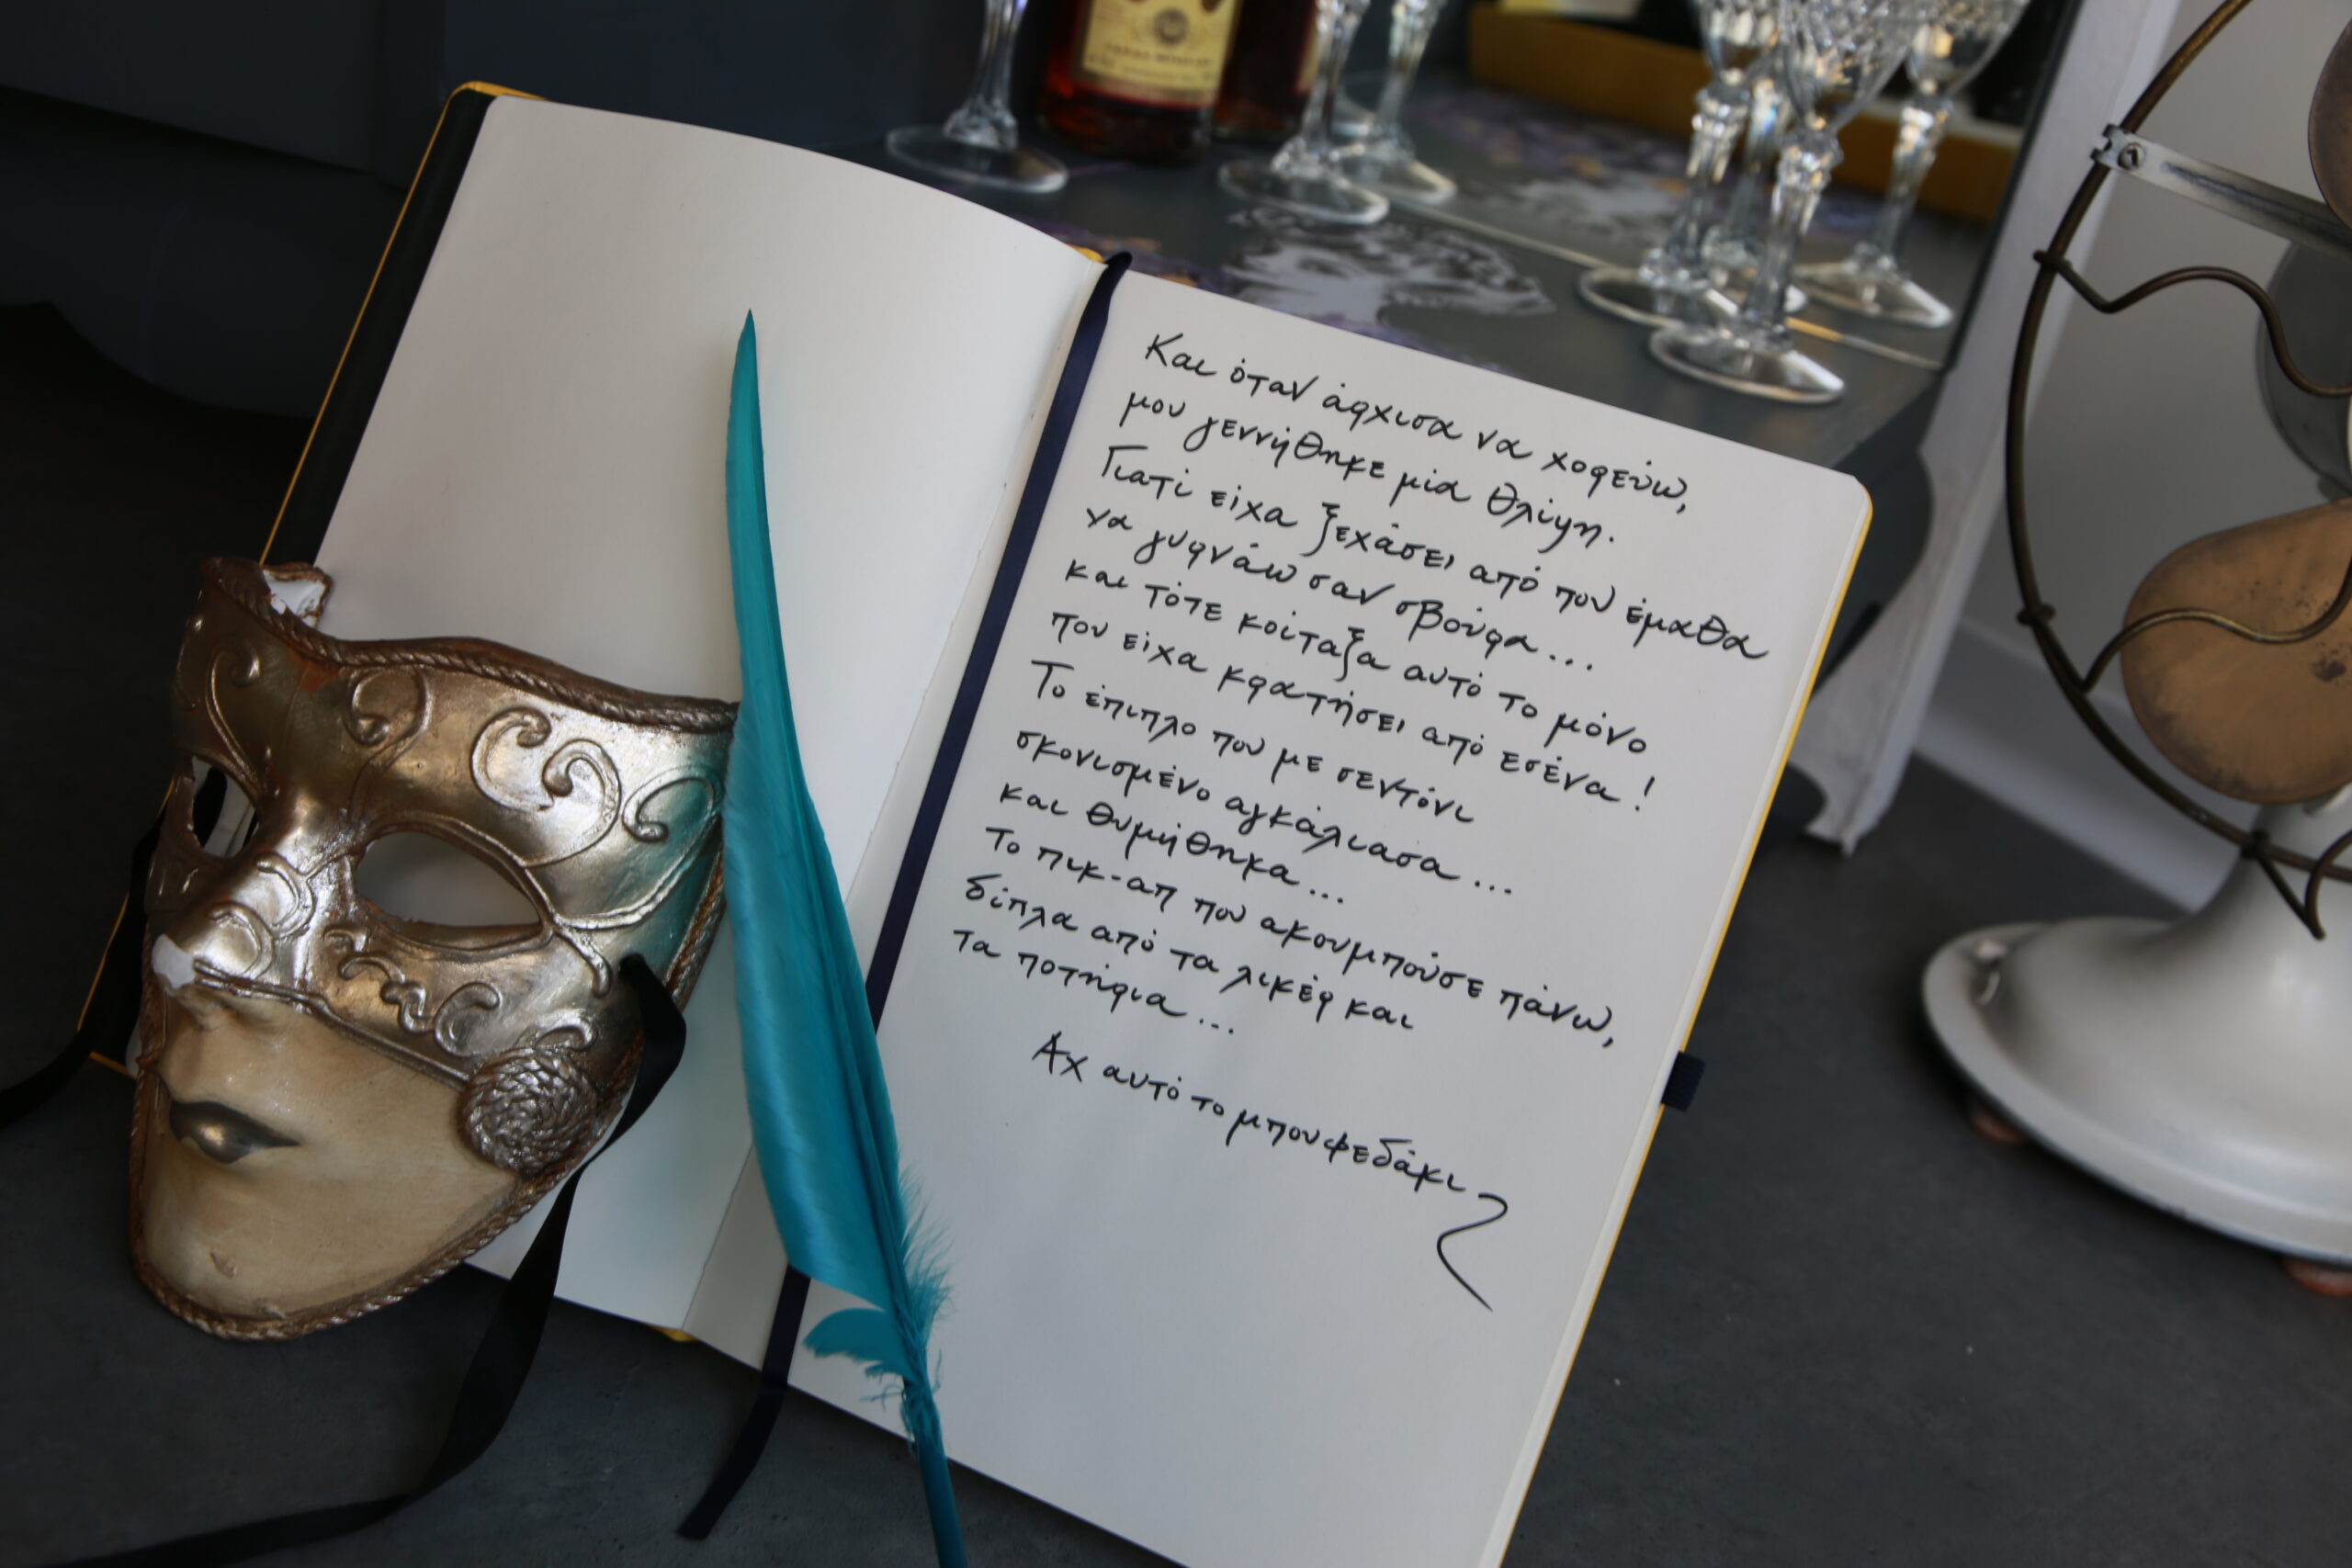 Και όταν άρχισα να χορεύω,
μου γεννήθηκε μία θλίψη.
Γιατί είχα ξεχάσει από που έμαθα
να γυρνάω σαν σβούρα...
και τότε κοίταξα αυτό το μόνο
που είχα κρατήσει από εσένα!
Το έπιπλο που με σεντόνι
σκονισμένο αγκάλιασα...
και θυμήθηκα...
Το πικ-απ που ακουμπούσε πάνω,
δίπλα από τα λικέρ και
τα ποτήρια...
Αχ αυτό το μπουφεδάκι